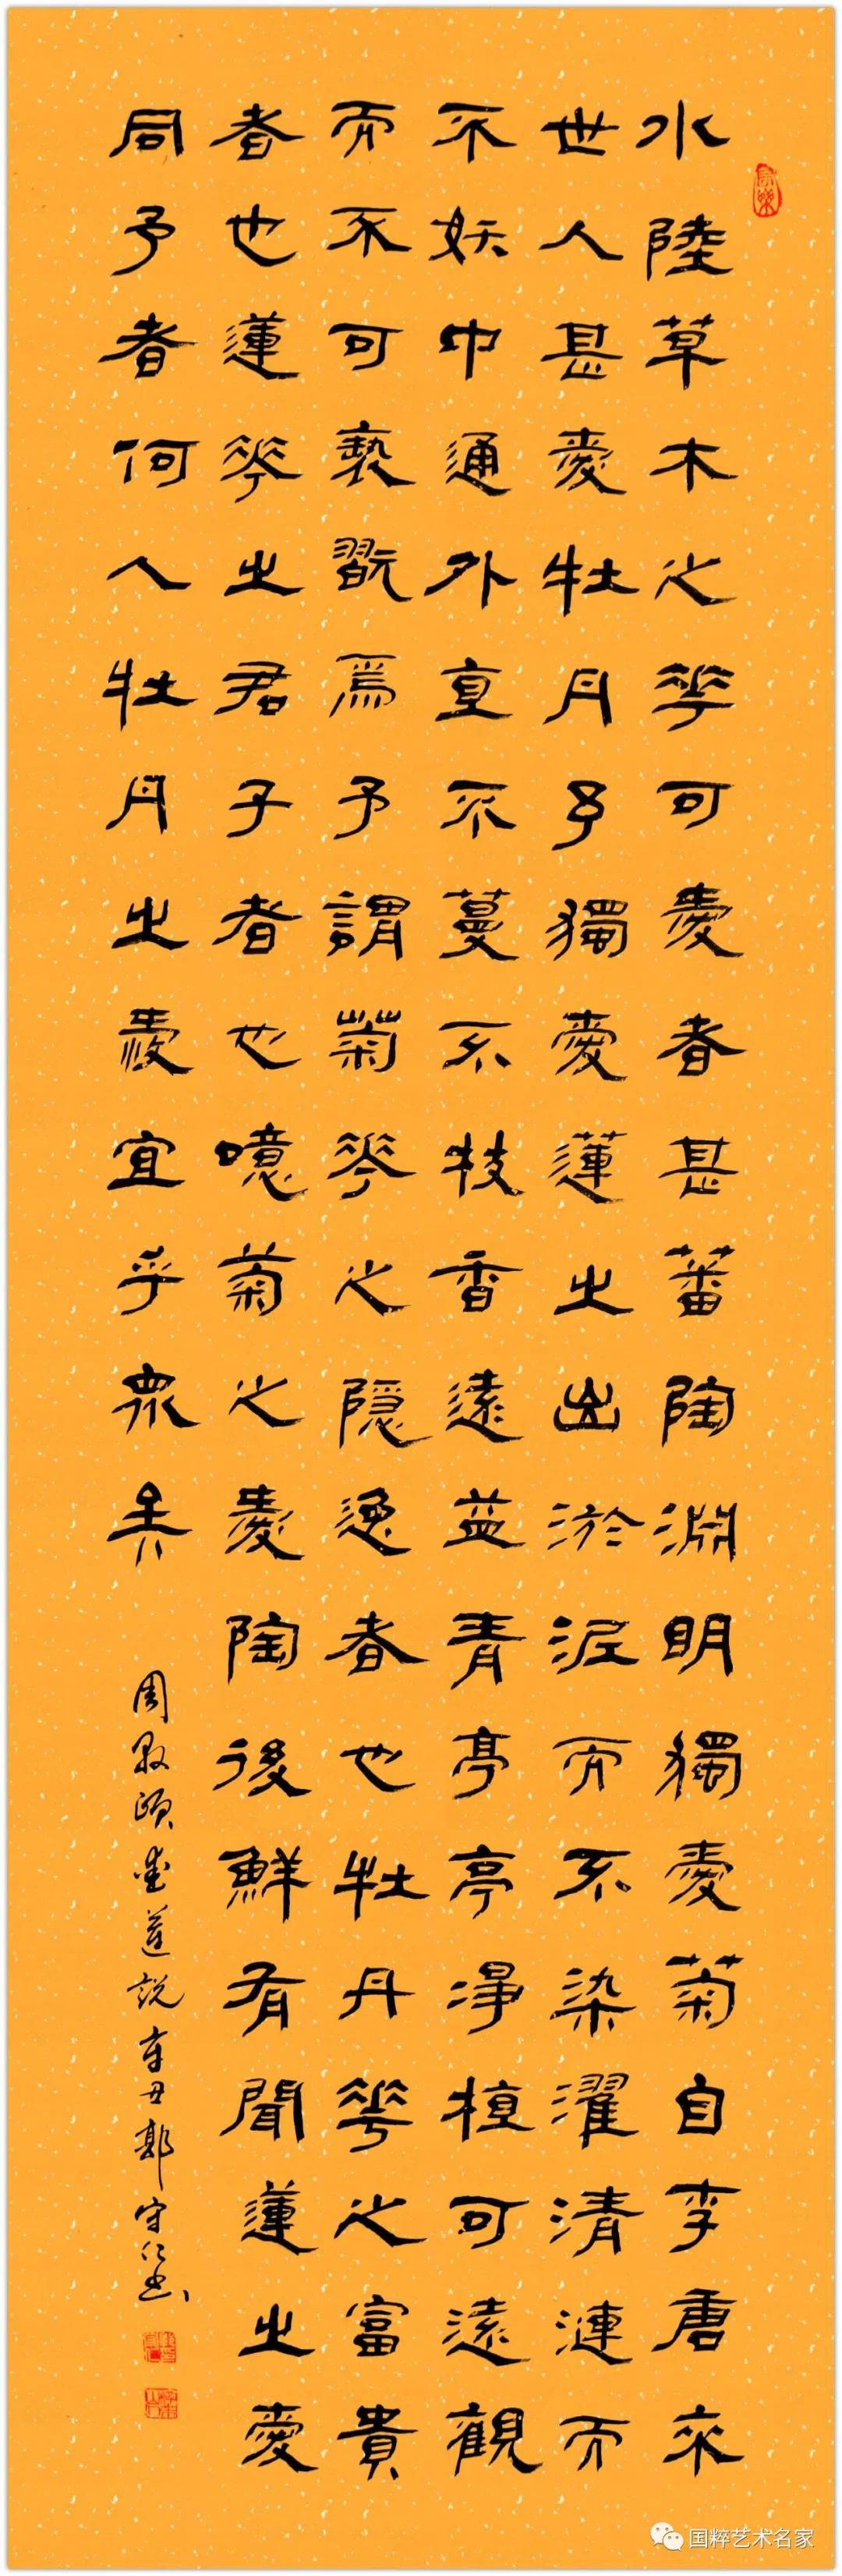 水陸草木之花可愛者甚蕃陶淵明獨愛菊自李唐來
世人甚愛牡丹予獨愛蓮之出淤泥而不染濯清漣而
不妖中通外直不蔓不枝香遠益青亭亭淨植可遠觀
而不可褻翫焉予謂菊花之隱逸者也牡丹花之富貴
者也蓮花之君子者也噫菊之愛陶後鮮有聞蓮之愛
同予者何人牡丹之愛宜乎眾矣
周敦頤愛蓮説辛丑郭守仁書
国粹艺术名家